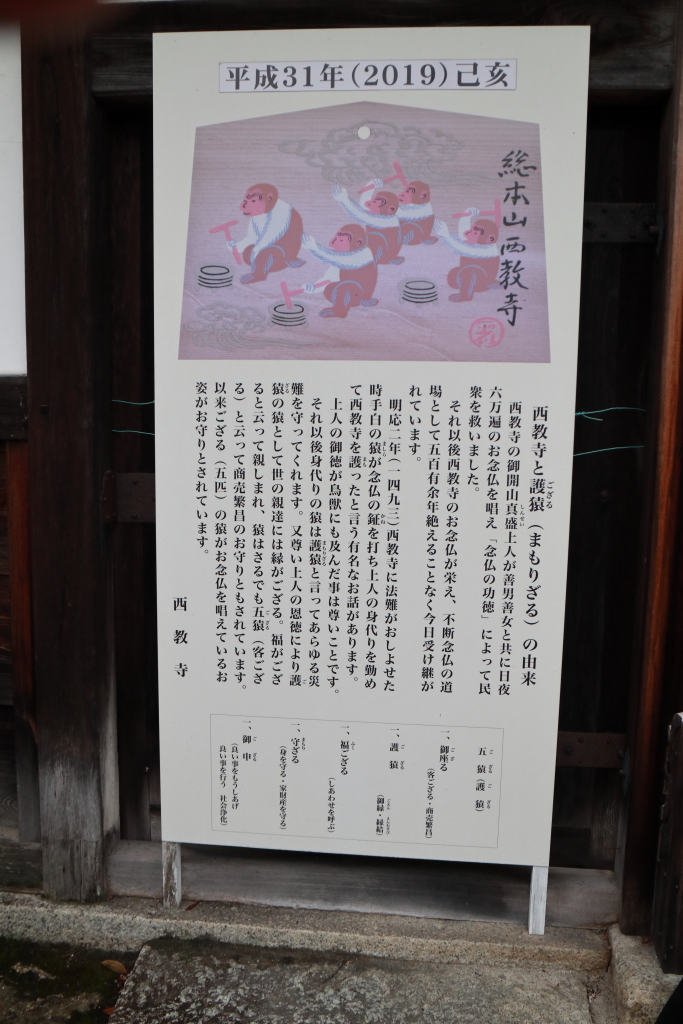 平成31年(2019)己亥
総本山西教寺
西教寺と護猿(まもりざる)の由来
ござる
西教寺の御開山真盛上人が善男善女と共に日夜
しんせい
六万遍のお念仏を唱え「念仏の功徳」によって民
衆を救いました。
それ以後西教寺のお念仏が栄え、不断念仏の道
場として五百有余年絶えることなく今日受け継が
れています。
明応二年(一四九三)西教寺に法難がおしよせた
時手白の猿が念仏の鉦を打ち上人の身代りを勤め
ましら
かね
て西教寺を護ったと言う有名なお話があります。
まも
上人の御徳が鳥獣にも及んだ事は尊いことです。
それ以後身代りの猿は護猿と言ってあらゆる災
まもりざる
難を守ってくれます。又尊い上人の恩徳により護
ご
猿の猿として世の親達には縁がござる。福がござ
ざる
ると云って親しまれ、猿はさるでも五猿(客ござ
ござる
る)と云って商売繁昌のお守りともされています。
以来ござる(五匹)の猿がお念仏を唱えているお
姿がお守りとされています。
西教寺
五猿(護猿)
ござる ござる
一、御座る
ござ
(客ござる・商売繁昌)
一、護猿
ござる
(御縁・縁結)
一、福ござる
ふく
(しあわせを呼ぶ)
一、守ざる
まもり
(身を守る・家財産を守る)
一、御申
ござる
(良い事をもうしあげ
良い事を行う 社会浄化)